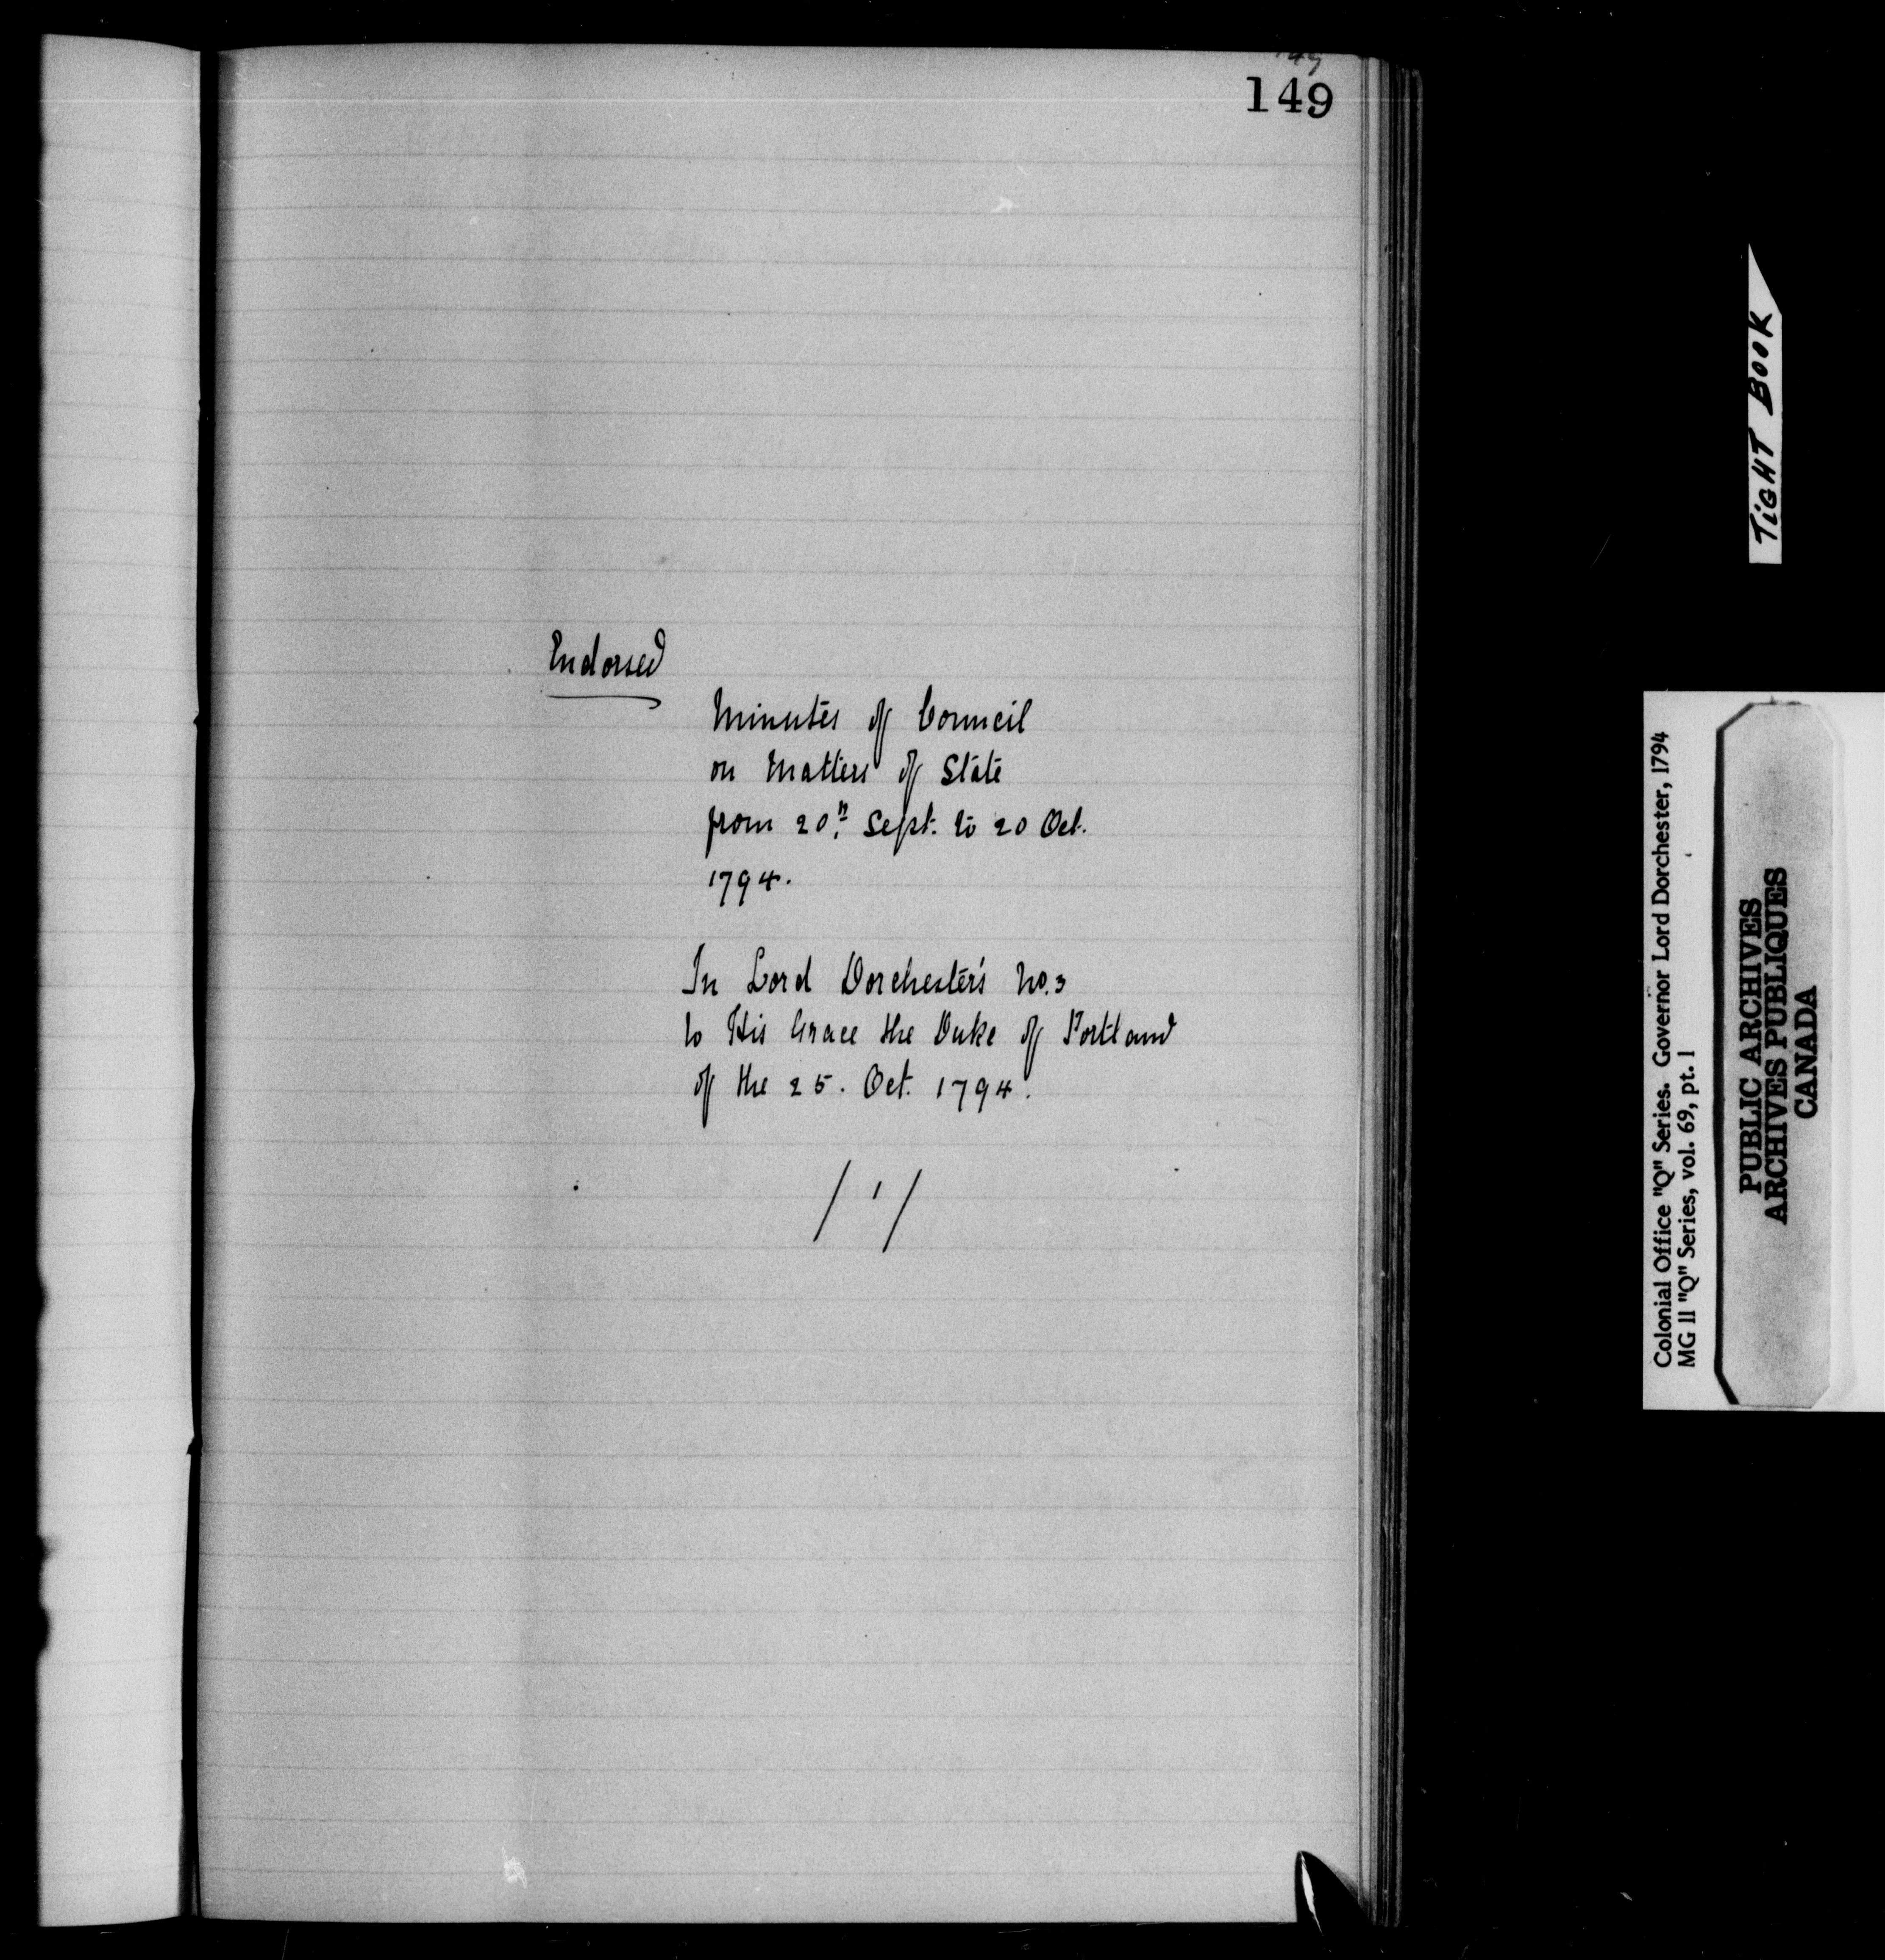 149
149
Endorsed
Minutes of Council
on Matters of State
from 20th Sept. to 20 Oct.
1794.
In Lord Dorchester's No. 3
to His Grace the Duke of Portland
of the 25. Oct. 1794.
/ ' /
TIGHT BOOK
Colonial Office "Q" Series. Governor Lord Dorchester, 1794
MG 11 "Q" Series, vol. 69, pt. 1
PUBLIC ARCHIVES
ARCHIVES PUBLIQUES
CANADA